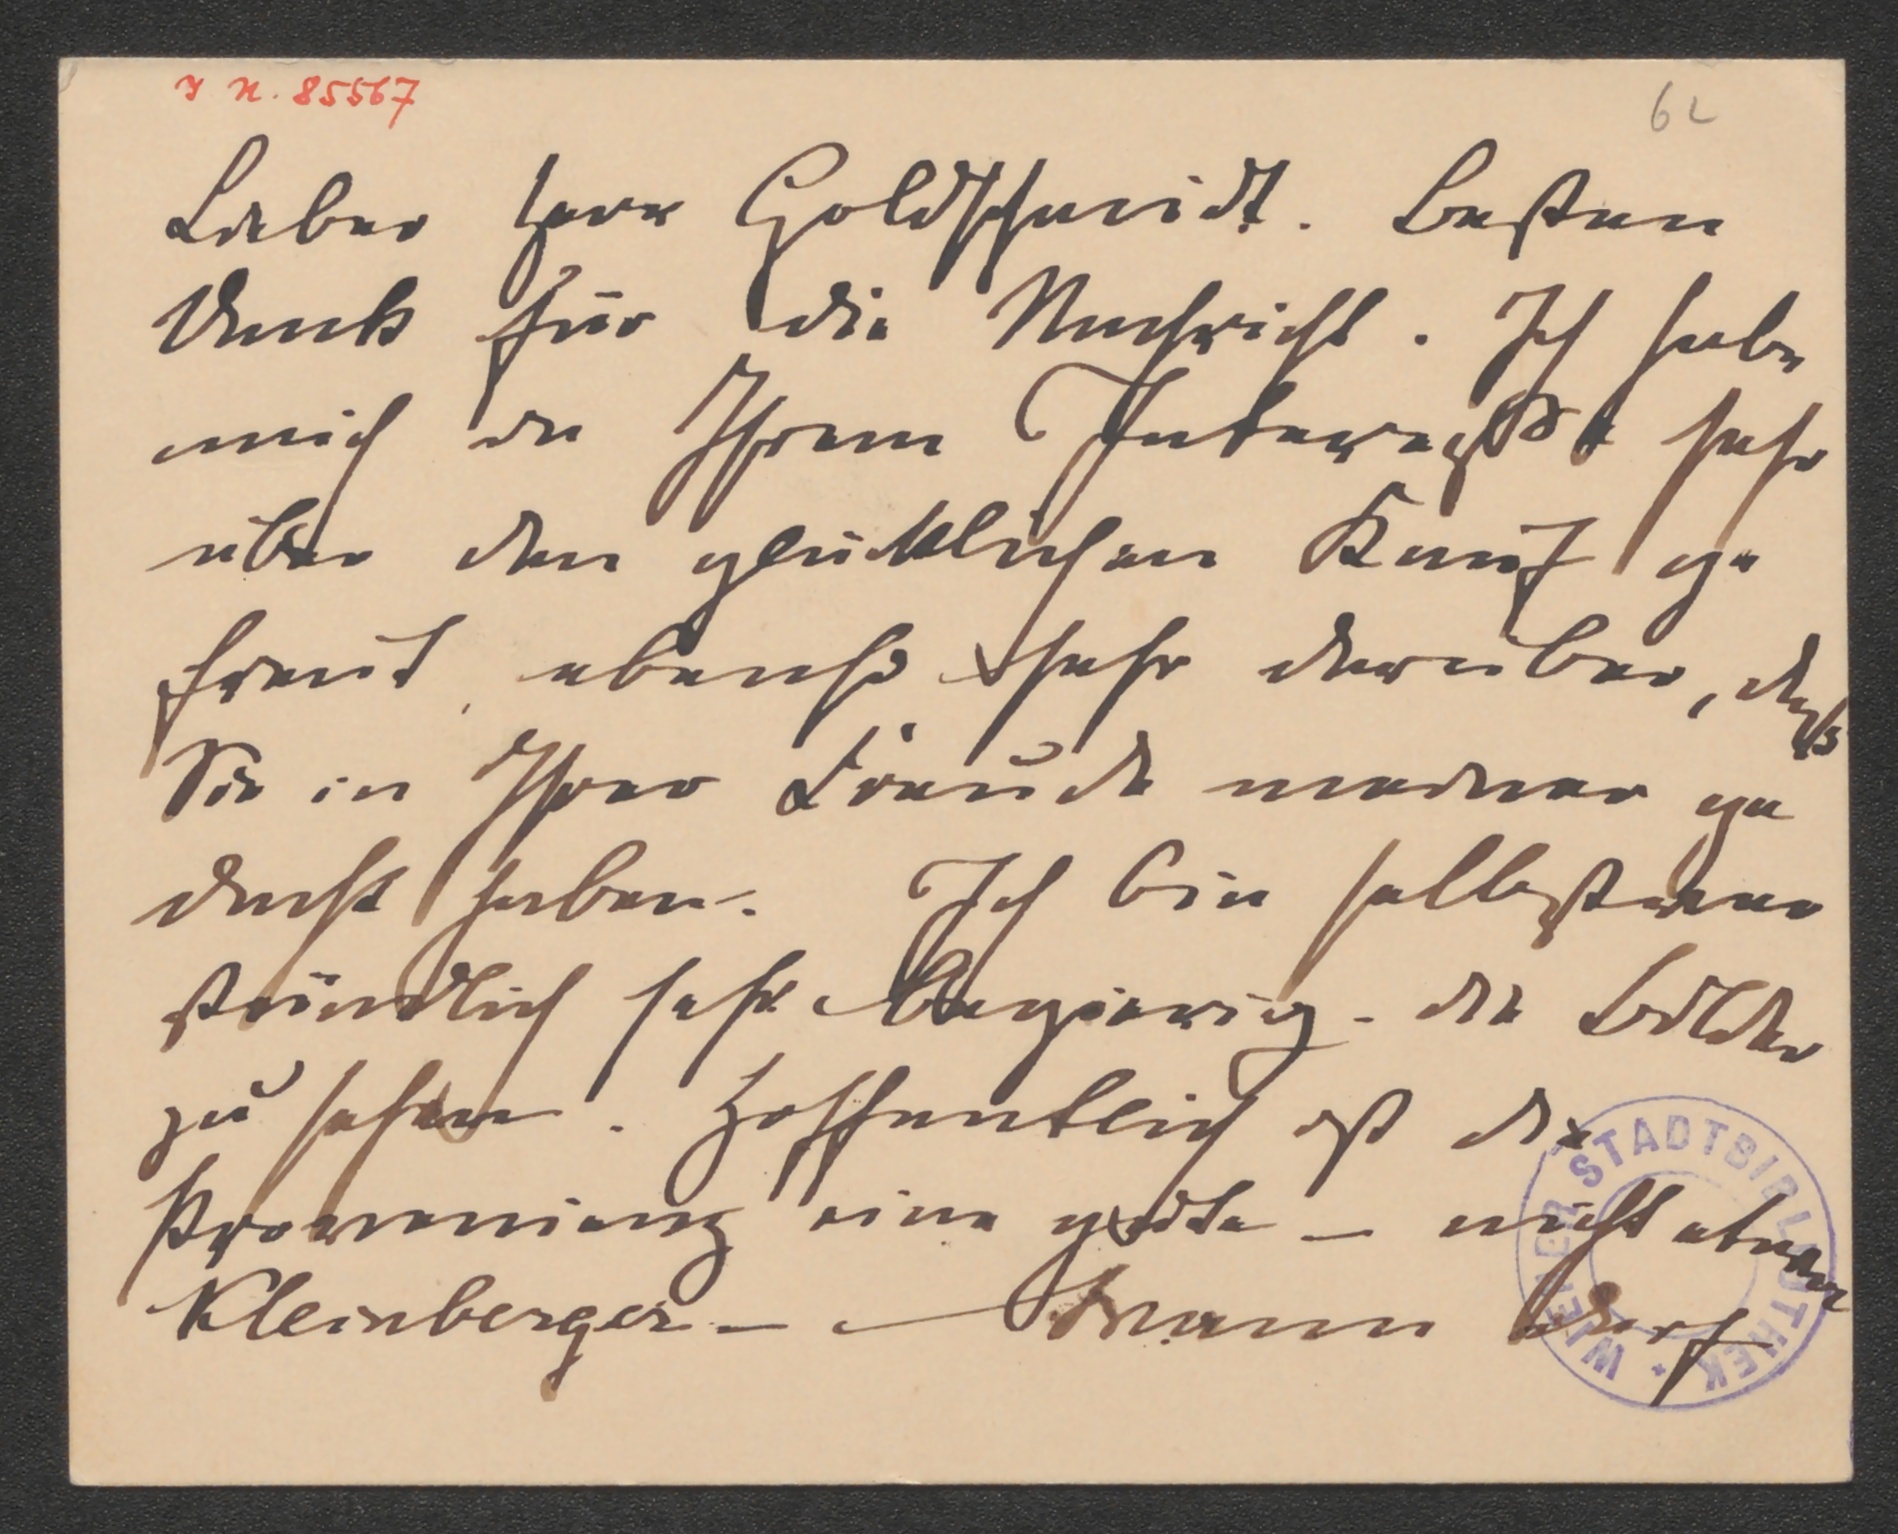 I. N. 85567
62
Lieber Herr Goldschmidt. Besten
Dank für die Nachricht. Ich habe
mich in Ihrem Interesse sehr
über den glücklichen Kauf ge
freut, ebenso sehr darüber, dass
Sie in Ihrer Freude meiner ge
dacht haben. Ich bin selbstver
ständlich sehr begierig die Bilder
zu sehen. Hoffentlich ist die
Provenienz eine gute – nicht etwa
Kleinberger – Wann darf
WIENER STADTBIBLIOTHEK *